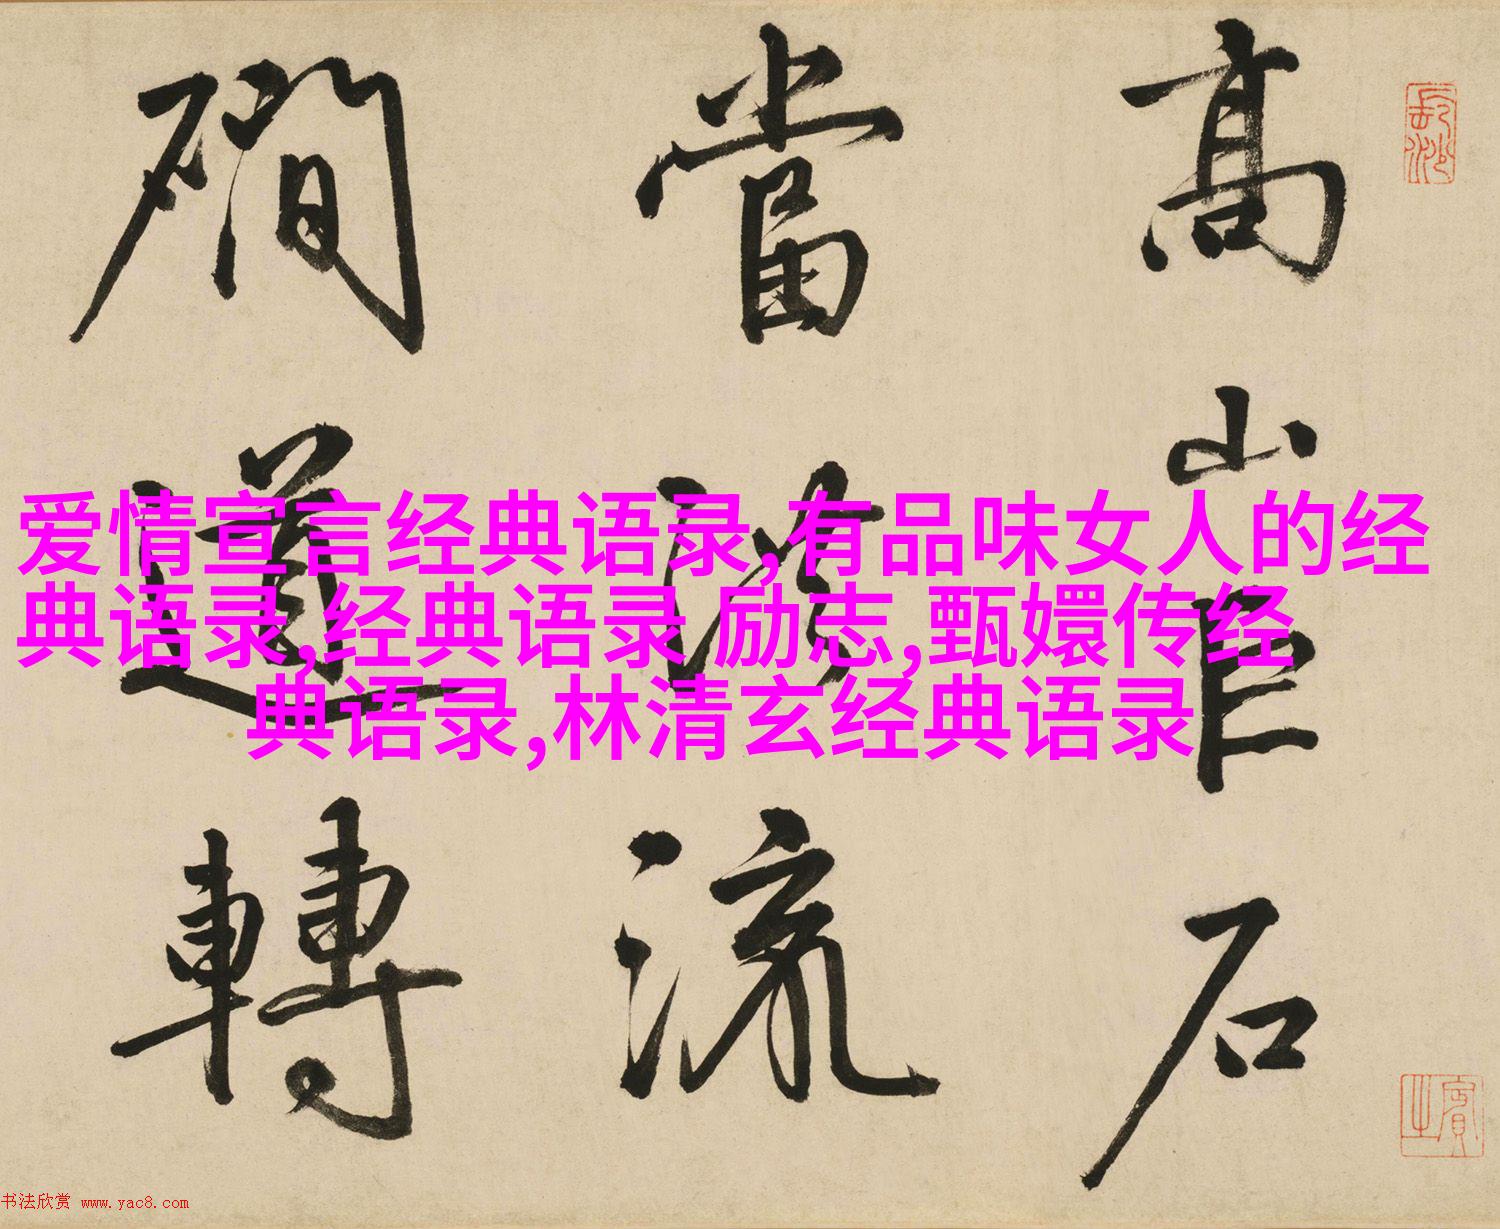 長沙
高山巨石
當流
磵道轉
賓之
爱情宣言经典语录,有品味女人的经
典语录,经典语录 励志,甄嬛传经
典语录,林清玄经典语录
书法欣赏 www.yac8.com